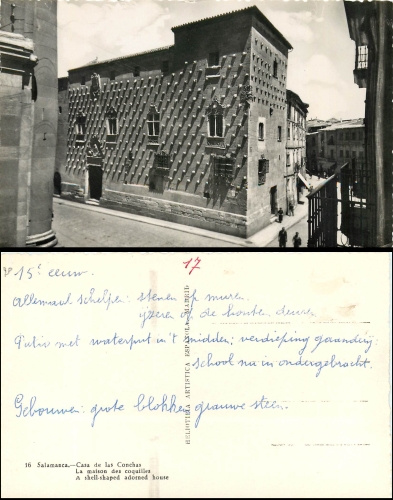 15e eeuw.
17
Allemaal schelpen: stenen op muren.
yzeren op de houten deuren
Patio met waterput in 't midden; verdieping gaanderij:
school na in ondergebracht.
Gebouwen: grote blokken grauwe steen.
HELIOTIPIA ARTISTICA ESPAÑOLA - MADRID
16 Salamanca.—Casa de las Conchas
La maison des coquilles
A shell-shaped adorned house